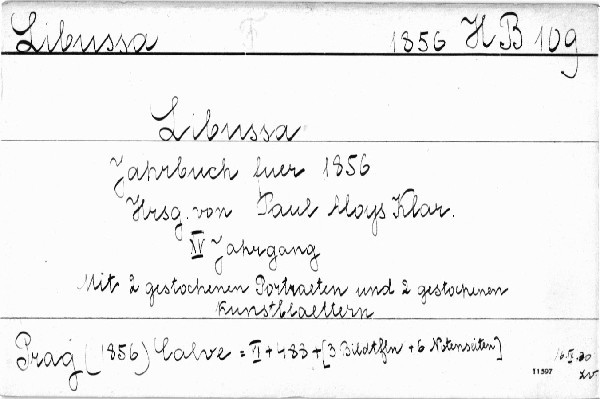 Libussa 1856 HB 109
Libussa
Jahrbuch fuer 1856
Hrsg. von Paul Aloys Klar.
XV Jahrgang
Mit 2 gestochenen Portraeten und 2 gestochenen
Kunstblaettern
Prag (1856) Calve = II + 488 + [3 Bildtfln + 6 Notenseiten]
11597